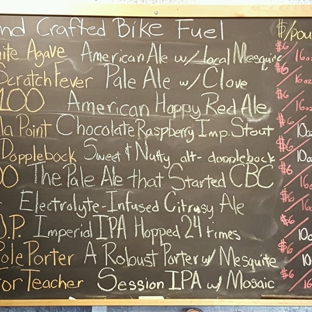 nd Crafted Bike Fuel $/pou
ite Agave American Ale w/ local Mesquite $6 16oz
ScratchFever Pale Ale w/ Clove $6 16oz
100 American Hoppy Red Ale $6 16
la Point Chocolate Raspberry Imp. Stout $6 10oz
Dopplebock Sweet & Nutty alt-dopplebock $6 10oz
00 The Pale Ale that Started CBC $6 16oz
Electrolyte-Infused Citrusy Ale $6 16o
J.P. Imperial IPA Hopped 24 times $6 10o
Pole Porter A Robust Porter w/ Mesquite $6 10o
for Teacher Session IPA w/ Mosaic $6 16